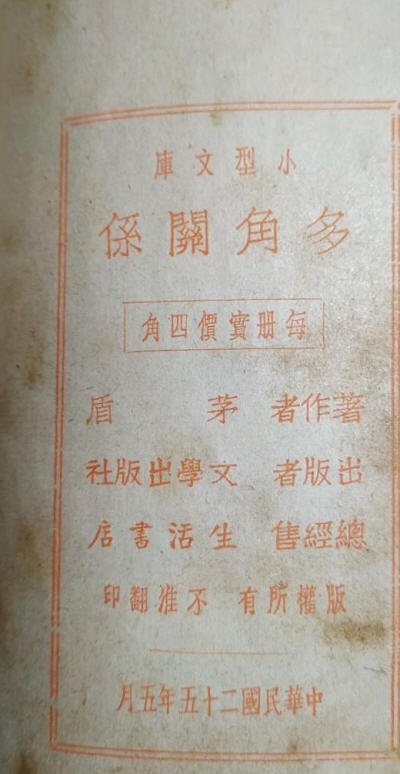 小型文庫
多角關係
每册實價四角
著作者 茅盾
出版者 文學出版社
總經售 生活書店
版權所有 不准翻印
中華民國二十五年五月